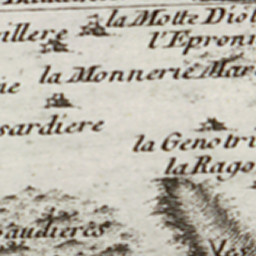 la Motte Diol
illere
l'Epronn
la Monnerie Mar
ie
sardiere
la Genotri
la Rago
audieres
Ves